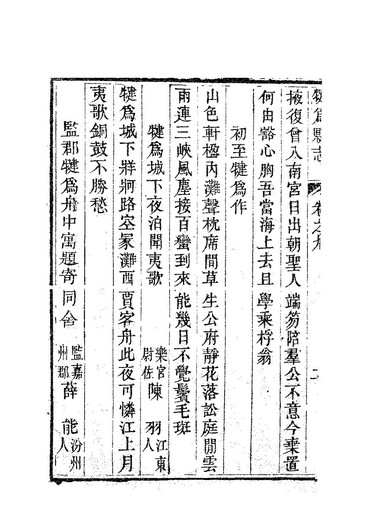 犍爲縣志 卷之 二
掖復曾入南宮日出朝聖人端笏陪羣公不意今棄置
何由豁心胸吾當海上去且學乘桴翁
初至犍爲作
山色軒楹內灘聲枕席間草生公府靜花落訟庭閒雲
雨連三峽風塵接百蠻到來能幾日不覺鬢毛斑
犍爲城下夜泊聞夷歌 樂宮尉佐 陳羽 江東人
犍爲城下牂牁路空冢灘西賈客舟此夜可憐江上月
夷歌銅鼓不勝愁
監郡犍爲舟中寓題寄同舍 監嘉州郡 薛能 汾州人